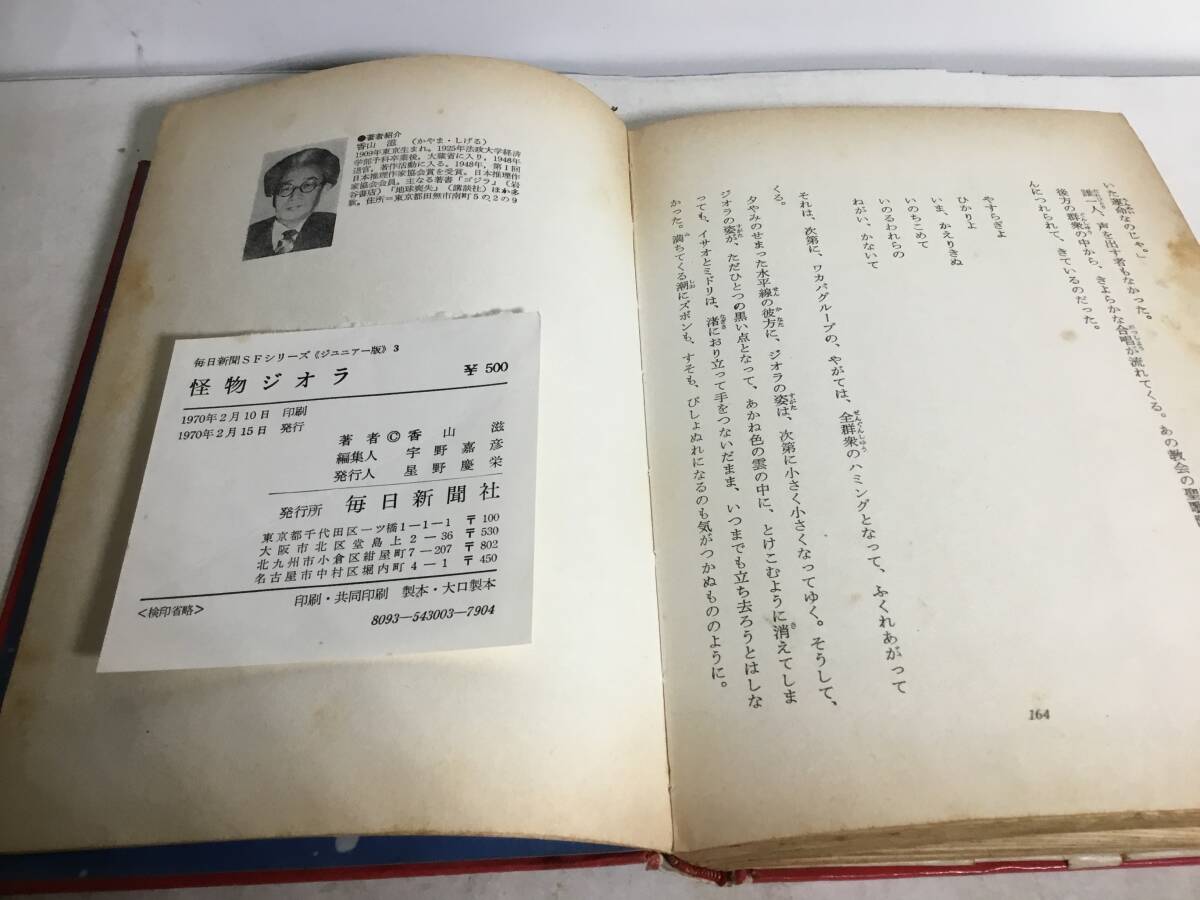 ●著者紹介
香山 滋 (かやま・しげる)
1909年東京生まれ。1925年法政大学経済
学部予科卒業後、大蔵省に入り、1948年
退官、著作活動に入る。1948年、第1回
日本推理作家協会賞を受賞。日本推理作
家協会会員。主なる著書「ゴジラ」(岩
谷書店)「地球喪失」(講談社)ほか多
数。住所=東京都田無市南町5の2の9
毎日新聞SFシリーズ《ジュニアー版》3
怪物ジオラ
¥500
1970年2月10日 印刷
1970年2月15日 発行
著者 © 香山 滋
編集人 宇野嘉彦
発行人 星野慶栄
発行所 毎日新聞社
東京都千代田区一ツ橋1-1-1 〒100
大阪市北区堂島上2-36 〒530
北九州市小倉区紺屋町7-207 〒802
名古屋市中村区堀内町4-1 〒450
<検印省略>
印刷・共同印刷 製本・大口製本
8093-543003-7904
いた運命なのじゃ。」
誰一人、声を出す者もなかった。
後方の群衆の中から、きよらかな合唱が流れてくる。あの教会の聖歌
んにつれられて、きているのだった。
やすらぎよ
ひかりよ
いま、かえりきぬ
いのちこめて
いのるわれらの
ねがい、かないて
それは、次第に、ワカバグループの、やがては、全群衆のハミングとなって、ふくれあがって
くる。
夕やみのせまった水平線の彼方に、ジオラの姿は、次第に小さく小さくなってゆく。そうして、
ジオラの姿が、ただひとつの黒い点となって、あかね色の雲の中に、とけこむように消えてしま
っても、イサオとミドリは、渚におり立って手をつないだまま、いつまでも立ち去ろうとはしな
かった。満ちてくる潮にズボンも、すそも、びしょぬれになるのも気がつかぬもののように。
164